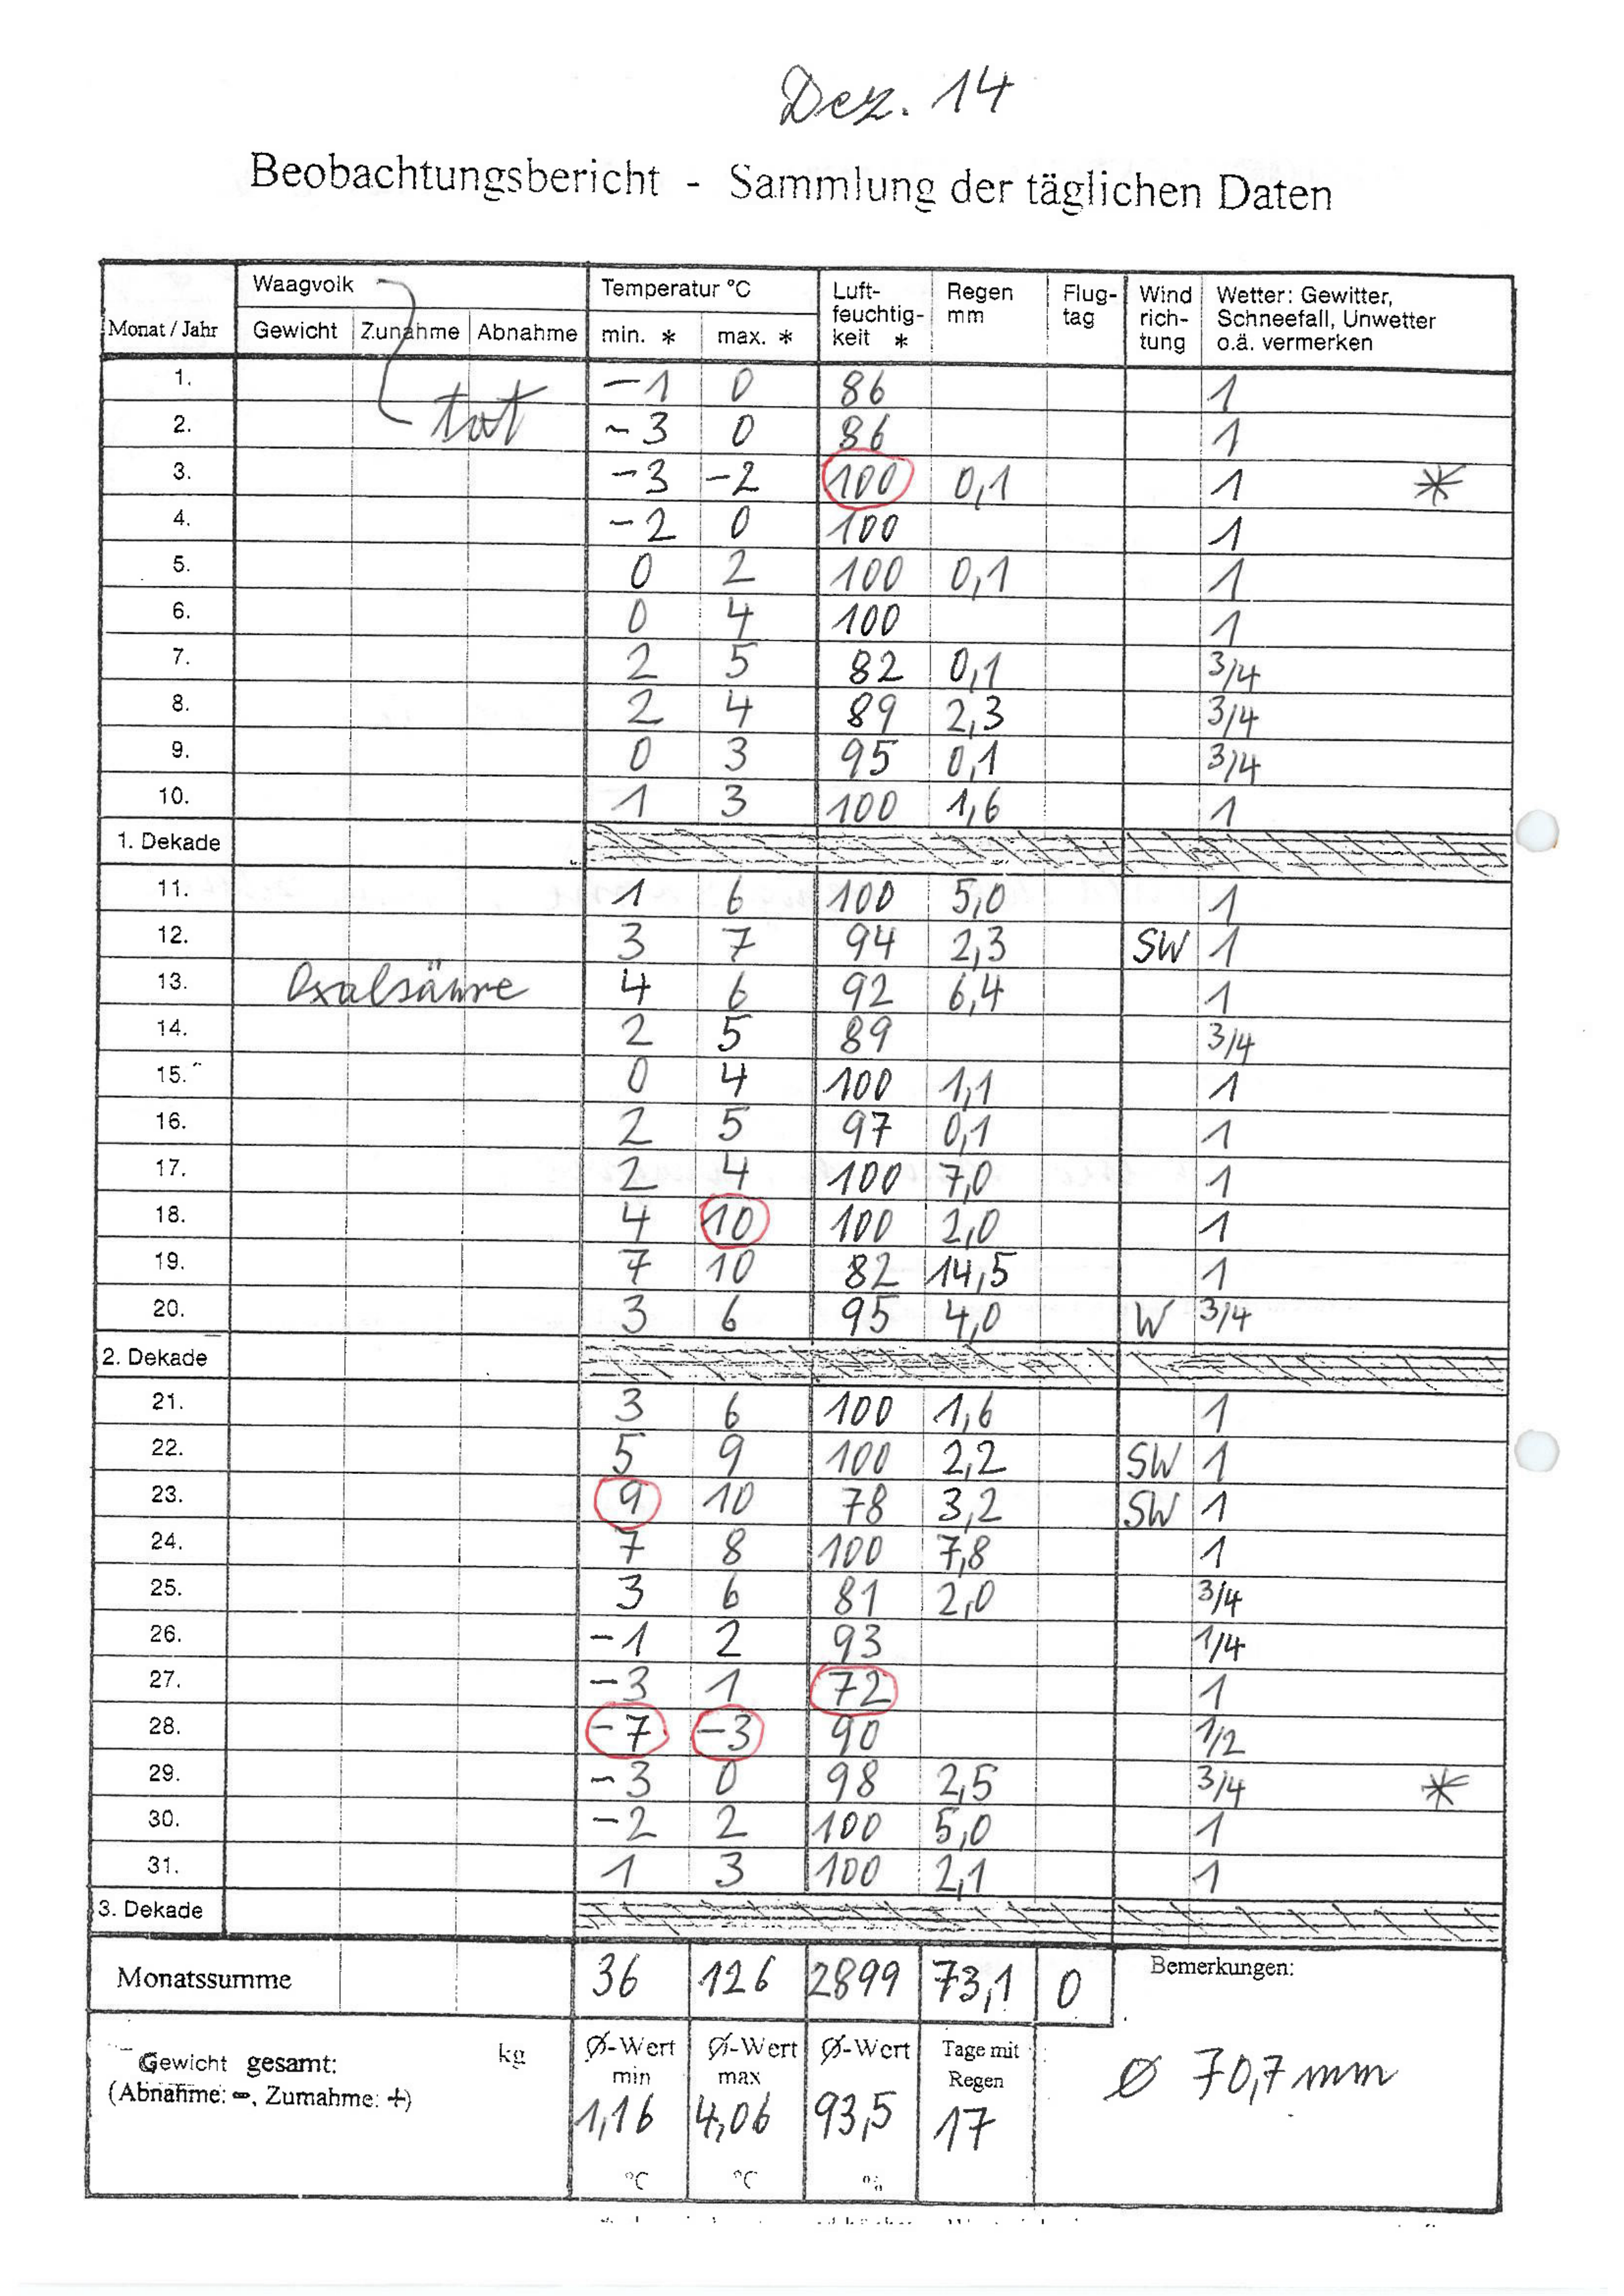 Dez. 14
Beobachtungsbericht - Sammlung der täglichen Daten
Monat / Jahr Waagvolk Temperatur °C Luft-feuchtig-keit * Regen mm Flug-tag Wind rich-tung Wetter: Gewitter, Schneefall, Unwetter o.ä. vermerken
Gewicht Zunahme Abnahme min. * max. *
1. -1 0 86 1
tot
2. -3 0 86 1
3. -3 -2 100 0,1 1 *
4. -2 0 100 1
5. 0 2 100 0,1 1
6. 0 4 100 1
7. 2 5 82 0,1 3/4
8. 2 4 89 2,3 3/4
9. 0 3 95 0,1 3/4
10. 1 3 100 1,6 1
1. Dekade
11. 1 6 100 5,0 1
12. 3 7 94 2,3 SW 1
13. Oxalsäure 4 6 92 6,4 1
14. 2 5 89 3/4
15. 0 4 100 1,1 1
16. 2 5 97 0,1 1
17. 2 4 100 7,0 1
18. 4 10 100 2,0 1
19. 7 10 82 14,5 1
20. 3 6 95 4,0 W 3/4
2. Dekade
21. 3 6 100 1,6 1
22. 5 9 100 2,2 SW 1
23. 9 10 78 3,2 SW 1
24. 7 8 100 7,8 1
25. 3 6 81 2,0 3/4
26. -1 2 93 1/4
27. -3 1 72 1
28. -7 -3 90 1/2
29. -3 0 98 2,5 3/4 *
30. -2 2 100 5,0 1
31. 1 3 100 2,1 1
3. Dekade
Monatssumme 36 126 2899 73,1 0 Bemerkungen:
Gewicht gesamt: kg Ø-Wert min Ø-Wert max Ø-Wert Tage mit Regen
(Abnahme: -, Zumahme: +) 1,16 4,06 93,5 17 Ø 70,7 mm
°C °C %